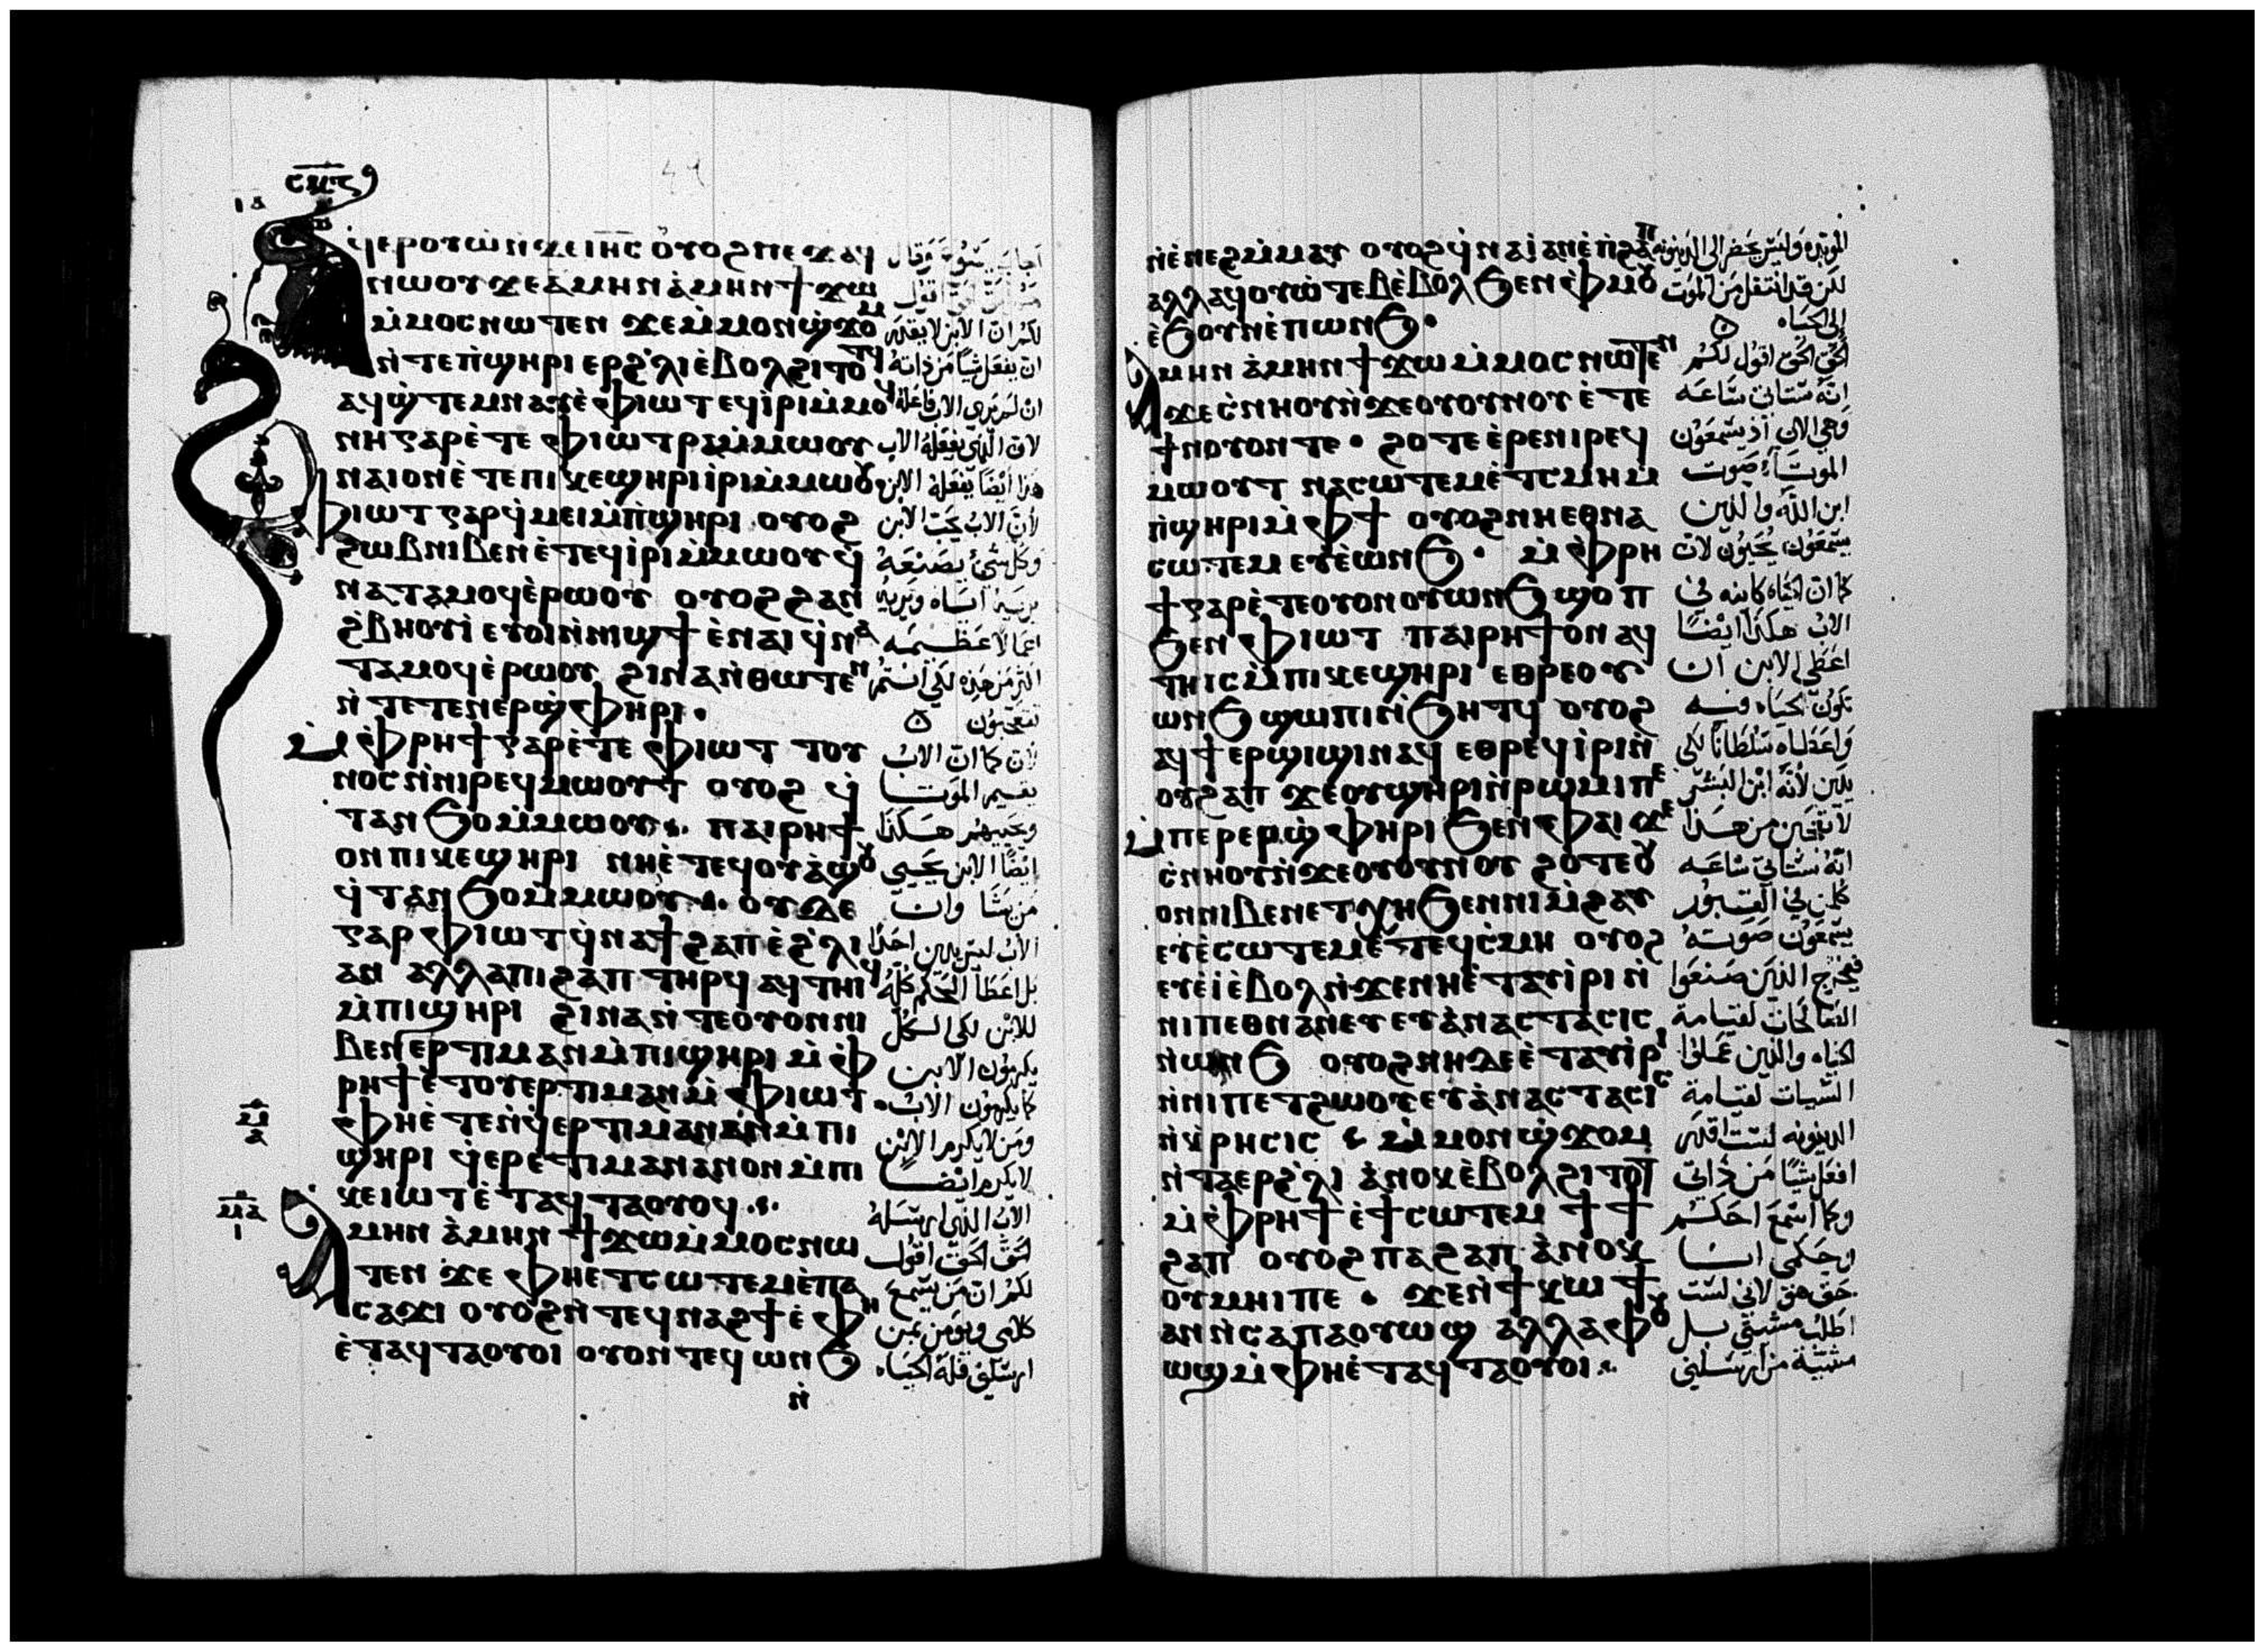 ⲥⲙⲋ
ⲁϥⲉⲣⲟⲩⲱ̀ ⲛϫⲉ ⲓⲏ̅ⲥ ⲟⲩⲟϩ ⲡⲉϫⲁϥ
ⲛⲱⲟⲩ ϫⲉ ⲁⲙⲏⲛ ⲁ̀ⲙⲏⲛ ϯϫⲱ
ⲙ̀ⲙⲟⲥ ⲛⲱⲧⲉⲛ ϫⲉ ⲙ̀ⲙⲟⲛ ϣ̀ϫⲟⲙ
ⲛ̀ⲧⲉ ⲡ̀ϣⲏⲣⲓ ⲉⲣϩ̀ⲗⲓ ⲉ̀ⲃⲟⲗ ϩⲓⲧⲟⲧϥ
ⲁϥϣ̀ⲧⲉⲙⲛⲁⲩ ⲉ̀ⲫⲓⲱⲧ ⲉϥⲓ̀ⲣⲓ ⲙ̀ⲙⲟϥ
ⲛⲏ ⲅⲁⲣ ⲉ̀ⲧⲉ ⲫⲓⲱⲧ ⲣⲁ ⲙ̀ⲙⲱⲟⲩ
ⲛⲁⲓ ⲟⲛ ⲉ̀ⲧⲉ ⲡⲓⲕⲉϣⲏⲣⲓ ⲓ̀ⲣⲓ ⲙ̀ⲙⲱⲟⲩ
ⲫⲓⲱⲧ ⲅⲁⲣ ϥ̀ⲙⲉⲓ ⲙ̀ⲡ̀ϣⲏⲣⲓ ⲟⲩⲟϩ
ϩⲱⲃ ⲛⲓⲃⲉⲛ ⲉ̀ⲧⲉϥⲓ̀ⲣⲓ ⲙ̀ⲙⲱⲟⲩ ϥ̀
ⲛⲁⲧⲁⲙⲟϥ ⲉ̀ⲣⲱⲟⲩ ⲟⲩⲟϩ ϩⲁⲛ
ϩ̀ⲃⲏⲟⲩⲓ̀ ⲉⲩⲟⲓ ⲛ̀ⲛⲓϣϯ ⲉ̀ⲛⲁⲓ ϥ̀ⲛⲁ
ⲧⲁⲙⲟϥ ⲉ̀ⲣⲱⲟⲩ ϩⲓⲛⲁ ⲛ̀ⲑⲱⲧⲉⲛ
ⲛ̀ⲧⲉⲧⲉⲛⲉⲣϣ̀ⲫⲏⲣⲓ ·
ⲙ̀ⲫⲣⲏϯ ⲅⲁⲣ ⲉ̀ⲧⲉ ⲫⲓⲱⲧ ⲧⲟⲩ
ⲛⲟⲥ ⲛ̀ⲛⲓⲣⲉϥⲙⲱⲟⲩⲧ ⲟⲩⲟϩ ϥ̀
ⲧⲁⲛϧⲟ ⲙ̀ⲙⲱⲟⲩ ⲡⲁⲓⲣⲏϯ
ⲟⲛ ⲡⲓⲕⲉϣⲏⲣⲓ ⲛⲏ ⲉ̀ⲧⲉϥⲟⲩⲁϣⲟⲩ
ϥ̀ⲧⲁⲛϧⲟ ⲙ̀ⲙⲱⲟⲩ ⲟⲩⲇⲉ
ⲅⲁⲣ ⲫⲓⲱⲧ ϥ̀ⲛⲁϯϩⲁⲡ ⲉ̀ϩ̀ⲗⲓ
ⲁⲛ ⲁⲗⲗⲁ ⲡⲓϩⲁⲡ ⲧⲏⲣϥ ⲁϥⲧⲏⲓϥ
ⲙ̀ⲡⲓϣⲏⲣⲓ ϩⲓⲛⲁ ⲛ̀ⲧⲉ ⲟⲩⲟⲛ ⲛⲓ
ⲃⲉⲛ ⲉⲣⲧⲓⲙⲁⲛ ⲙ̀ⲡⲓϣⲏⲣⲓ ⲙ̀ⲫ
ⲣⲏϯ ⲉ̀ⲧⲟⲩⲉⲣⲧⲓⲙⲁⲛ ⲙ̀ⲫⲓⲱⲧ ·
ⲫⲏ ⲉ̀ⲧⲉⲛ̀ϥⲉⲣⲧⲓⲙⲁⲛ ⲁⲛ ⲙ̀ⲡⲓ
ϣⲏⲣⲓ ϥ̀ⲉⲣⲉⲧⲓⲙⲁⲛ ⲁⲛ ⲟⲛ ⲙ̀ⲡⲓ
ⲕⲉⲓⲱⲧ ⲉ̀ⲧⲁϥⲧⲁⲟⲩⲟϥ
ⲁⲙⲏⲛ ⲁ̀ⲙⲏⲛ ϯϫⲱ ⲙ̀ⲙⲟⲥ ⲛⲱ
ⲧⲉⲛ ϫⲉ ⲫⲏ ⲉⲧⲥⲱⲧⲉⲙ ⲉ̀ⲡⲁ
ⲥⲁϫⲓ ⲟⲩⲟϩ ⲛ̀ⲧⲉϥⲛⲁϩϯ ⲉ̀ⲫⲏ
ⲉ̀ⲧⲁϥⲧⲁⲟⲩⲟⲓ ⲟⲩⲟⲛⲧⲉϥ ⲱⲛϧ
ⲛ̀
اجاب يسوع وقال
لكم ان الابن لا يقدر
ان يفعل شيا من ذاته
لان الذي يفعله الاب
هذا ايضا يفعله الابن
لان الاب يحب الابن
وكل شئ يصنعه
اعمالا عظيمه
تتعجبون
لان كما ان الاب
يقيم الموتا
ويحييهم هكذا
ايضا الابن يحيى
من يشا وان
الاب ليس يدين احدا
بل اعطا الحكم كله
للابن لكى الكل
يكرمون الابن
كما يكرمون الاب
ومن لا يكرم الابن
لا يكرم ايضا
الاب الذي ارسله
الحق الحق اقول
لكم ان من يسمع
كلامى ويومن بمن
ارسلني فله الحياه
ⲛ̀ⲉ̀ⲛⲉϩ ⲙ̀ⲙⲁⲩ ⲟⲩⲟϩ ϥ̀ⲛⲁⲓ̀ ⲁⲛ ⲉ̀ⲡ̀ϩⲁⲡ
ⲁⲗⲗⲁ ϥⲟⲩⲱ̀ⲧⲉⲃ ⲉ̀ⲃⲟⲗ ϧⲉⲛ ⲫ̀ⲙⲟⲩ
ⲉ̀ϧⲟⲩⲛ ⲉ̀ⲡⲱⲛϧ ·
ⲁⲙⲏⲛ ⲁ̀ⲙⲏⲛ ϯϫⲱ ⲙ̀ⲙⲟⲥ ⲛⲱⲧⲉⲛ
ϫⲉ ⲥ̀ⲛⲏⲟⲩ ⲛ̀ϫⲉ ⲟⲩⲟⲩⲛⲟⲩ ⲉ̀ⲧⲉ
ϯⲛⲟⲩ ⲟⲛ ⲧⲉ · ϩⲟⲧⲉ ⲉ̀ⲣⲉ ⲛⲓⲣⲉϥ
ⲙⲱⲟⲩⲧ ⲛⲁⲥⲱⲧⲉⲙ ⲉ̀ⲧⲥⲙⲏ ⲙ̀
ⲡ̀ϣⲏⲣⲓ ⲙ̀ⲫϯ ⲟⲩⲟϩ ⲛⲏ ⲉⲑⲛⲁ
ⲥⲱⲧⲉⲙ ⲉⲩⲉ̀ⲱⲛϧ · ⲙ̀ⲫⲣⲏ
ϯ ⲅⲁⲣ ⲉ̀ⲧⲉ ⲟⲩⲟⲛ ⲟⲩⲱⲛϧ ϣⲟⲡ
ϧⲉⲛ ⲫⲓⲱⲧ ⲡⲁⲓⲣⲏϯ ⲟⲛ ⲁϥ
ⲧⲏⲓⲥ ⲙ̀ⲡⲓⲕⲉϣⲏⲣⲓ ⲉⲑⲣⲉ ⲟⲩ
ⲱⲛϧ ϣⲱⲡⲓ ⲛ̀ϧⲏⲧϥ ⲟⲩⲟϩ
ⲁϥϯⲉⲣϣⲓϣⲓ ⲛⲁϥ ⲉⲑⲣⲉϥⲓ̀ⲣⲓ ⲛ̀
ⲟⲩϩⲁⲡ ϫⲉ ⲟⲩϣⲏⲣⲓ ⲛ̀ⲣⲱⲙⲓ ⲡⲉ
ⲙ̀ⲡⲉⲣⲉⲣϣ̀ⲫⲏⲣⲓ ϧⲉⲛ ⲫⲁⲓ ϫⲉ
ⲥ̀ⲛⲏⲟⲩ ⲛ̀ϫⲉ ⲟⲩⲟⲩⲛⲟⲩ ϩⲟⲧⲉ ⲟⲩ
ⲟⲛ ⲛⲓⲃⲉⲛ ⲉⲧⲭⲏ ϧⲉⲛ ⲛⲓⲙ̀ϩⲁⲩ
ⲉⲩⲉ̀ⲥⲱⲧⲉⲙ ⲉ̀ⲧⲉϥⲥ̀ⲙⲏ ⲟⲩⲟϩ
ⲉⲩⲉ̀ⲓ̀ ⲉ̀ⲃⲟⲗ ⲛ̀ϫⲉ ⲛⲏ ⲉ̀ⲧⲁⲩⲓ̀ⲣⲓ ⲛ̀
ⲛⲓⲡⲉⲑⲛⲁⲛⲉⲩ ⲉⲩⲁ̀ⲛⲁⲥⲧⲁⲥⲓⲥ
ⲛ̀ⲱⲛϧ ⲟⲩⲟϩ ⲛⲏ ⲇⲉ ⲉ̀ⲧⲁⲩⲓ̀ⲣⲓ
ⲛ̀ⲛⲓⲡⲉⲧϩⲱⲟⲩ ⲉⲩⲁ̀ⲛⲁⲥⲧⲁⲥⲓⲥ
ⲛ̀ⲕ̀ⲣⲏⲥⲓⲥ ⲙ̀ⲙⲟⲛ ϣ̀ϫⲟⲙ
ⲛ̀ⲧⲁⲉⲣϩ̀ⲗⲓ ⲁ̀ⲛⲟⲕ ⲉ̀ⲃⲟⲗ ϩⲓⲧⲟⲧ
ⲙ̀ⲫⲣⲏϯ ⲉ̀ϯⲥⲱⲧⲉⲙ ϯϯ
ϩⲁⲡ ⲟⲩⲟϩ ⲡⲁϩⲁⲡ ⲁ̀ⲛⲟⲕ
ⲟⲩⲙⲏⲓ ⲡⲉ · ϫⲉ ⲛ̀ϯⲕⲱϯ
ⲁⲛ ⲛ̀ⲥⲁ ⲡⲁⲟⲩⲱϣ ⲁⲗⲗⲁ ⲫⲟⲩ
ⲱϣ ⲙ̀ⲫⲏ ⲉ̀ⲧⲁϥⲧⲁⲟⲩⲟⲓ
الموبده وليس يحضر الى الدينونه
لكن قد انتقل من الموت
الى الحياه
الحق الحق اقول لكم
انه ستاتي ساعه
وهي الان اذ يسمعون
الموتا صوت
ابن الله والذين
يسمعون يحيون لان
كما ان الحياه كاينه في
الاب هكذا ايضا
اعطى الابن ان
تكون الحياه فيه
واعطاه سلطانا لكى
يدين لانه ابن البشر
لا تتعجبن من هذا
انه ستاتي ساعه
كلمن في القبور
يسمعون صوته
فيخرج الذين صنعوا
الصالحات لقيامة
الحياه والذين عملوا
السيات لقيامة
الدينونه لست اقدر
افعل شيا من ذاتي
وكما اسمع احكم
وحكمى انا
حق هو لاني لست
اطلب مشيتي بل
مشية من ارسلني